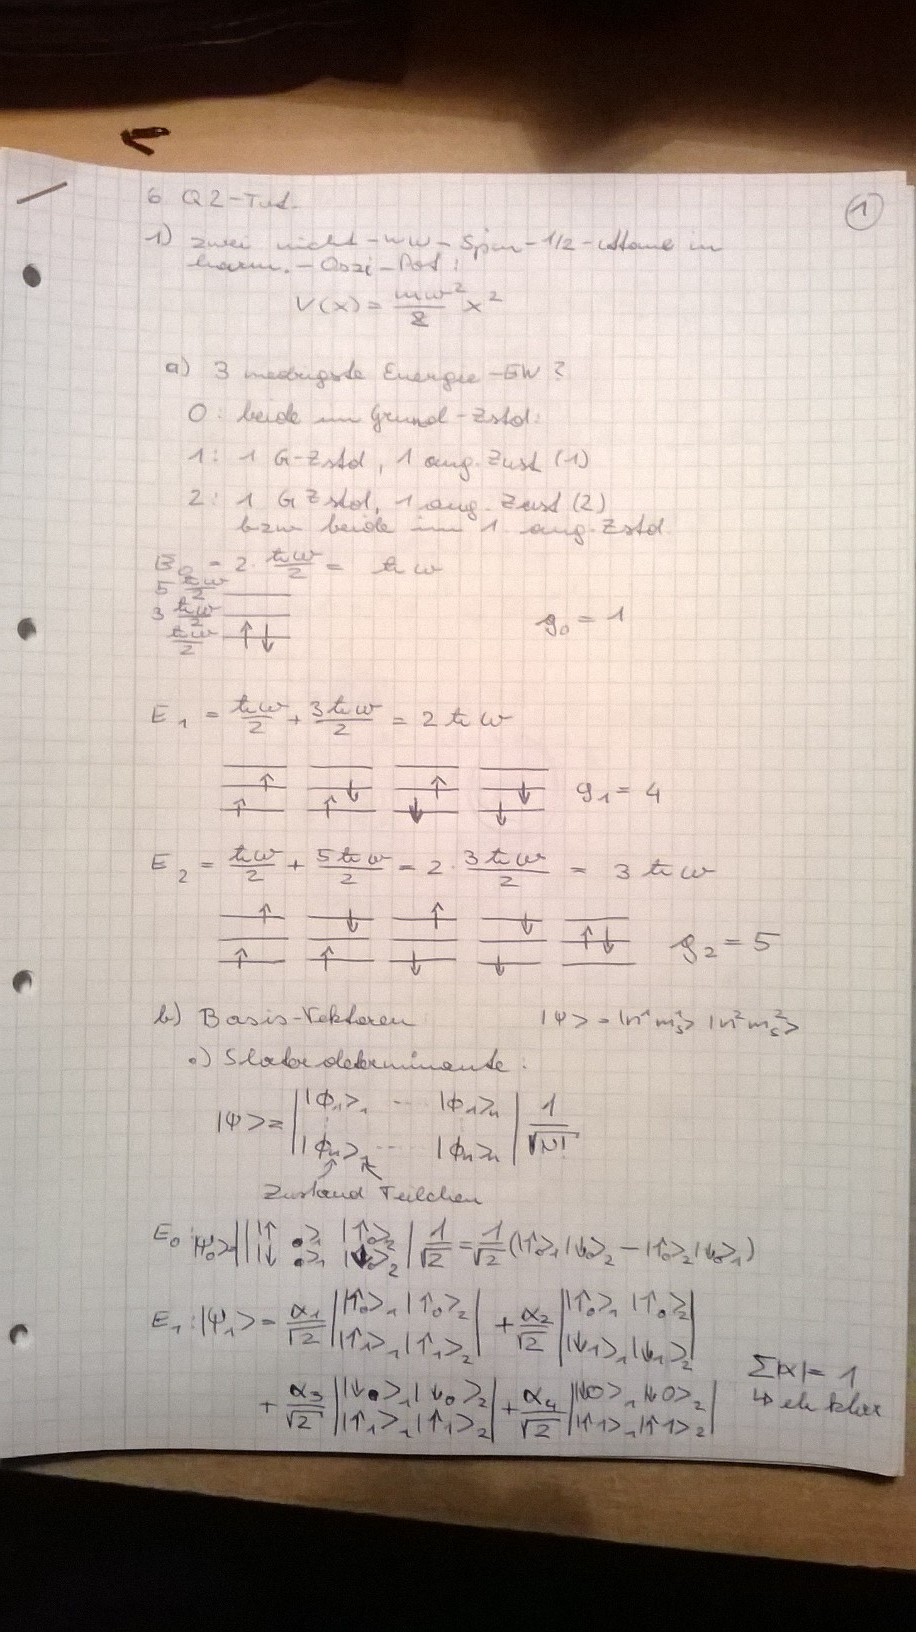 6 Q2-Tut.
①
1) zwei nicht-ww-Spin-1/2-Atome in
harm.-Oszi-Pot:
V(x) = \frac{mω^2}{2} x^2
a) 3 niedrigste Energie-EW?
0: beide im Grund-Zstd:
1: 1 G-Zstd, 1 ang. Zust (1)
2: 1 G Zstd, 1 ang. Zust (2)
bzw beide im 1. ang. Zstd.
E_0 = 2 · \frac{ħω}{2} = ħω
5 \frac{ħω}{2}
3 \frac{ħω}{2}
\frac{ħω}{2} ↑↓ g_0 = 1
E_1 = \frac{ħω}{2} + \frac{3ħω}{2} = 2ħω
↑ ↓ ↑ ↓
↑ ↑ ↓ ↓ g_1 = 4
E_2 = \frac{ħω}{2} + \frac{5ħω}{2} = 2 · \frac{3ħω}{2} = 3ħω
↑ ↓ ↑ ↓
↑↓ g_2 = 5
↑ ↑ ↓ ↓
b) Basis-Vektoren |Ψ> = |n^1 m_s^1> |n^2 m_s^2>
•) Slaterdeterminante:
|Ψ> = \begin{vmatrix} |Φ_1>_1 & ... & |Φ_1>_n \\ |Φ_n>_1 & ... & |Φ_n>_n \end{vmatrix} \frac{1}{\sqrt{N!}}
Zustand Teilchen
E_0 |Ψ_0> = \begin{vmatrix} |↑_0>_1 & |↑_0>_2 \\ |↓_0>_1 & |↓_0>_2 \end{vmatrix} \frac{1}{\sqrt{2}} = \frac{1}{\sqrt{2}} (|↑_0>_1 |↓_0>_2 - |↑_0>_2 |↓_0>_1)
E_1: |Ψ_1> = \frac{α_1}{\sqrt{2}} \begin{vmatrix} |↑_0>_1 & |↑_0>_2 \\ |↑_1>_1 & |↑_1>_2 \end{vmatrix} + \frac{α_2}{\sqrt{2}} \begin{vmatrix} |↑_0>_1 & |↑_0>_2 \\ |↓_1>_1 & |↓_1>_2 \end{vmatrix}
+ \frac{α_3}{\sqrt{2}} \begin{vmatrix} |↓_0>_1 & |↓_0>_2 \\ |↑_1>_1 & |↑_1>_2 \end{vmatrix} + \frac{α_4}{\sqrt{2}} \begin{vmatrix} |↓0>_1 & |↓0>_2 \\ |↑1>_1 & |↑1>_2 \end{vmatrix}
Σ|α| = 1
↳ eh klar